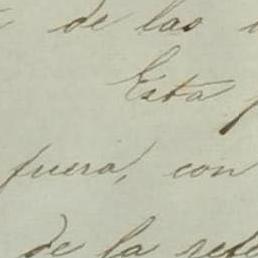 de las
Esta
fuera, con
de la